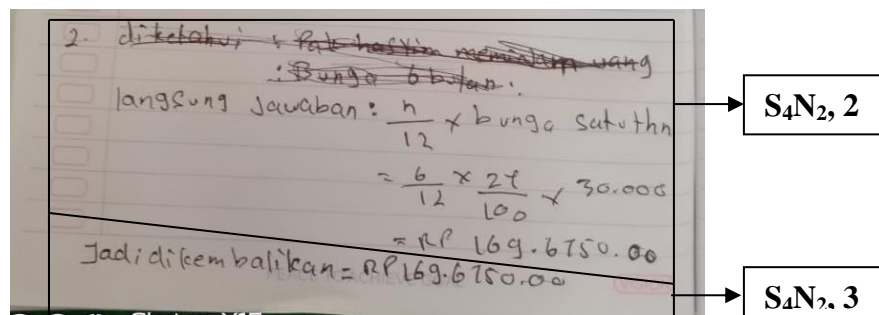 2. diketahui : Pak hasyim meminjam uang
: Bunga 6 bulan.
langsung Jawaban : n/12 × bunga satu thn
= 6/12 × 24/100 × 30.000
= RP 169.6750.00
Jadi dikembalikan = RP 169.6750.00
S₄N₂, 2
S₄N₂, 3